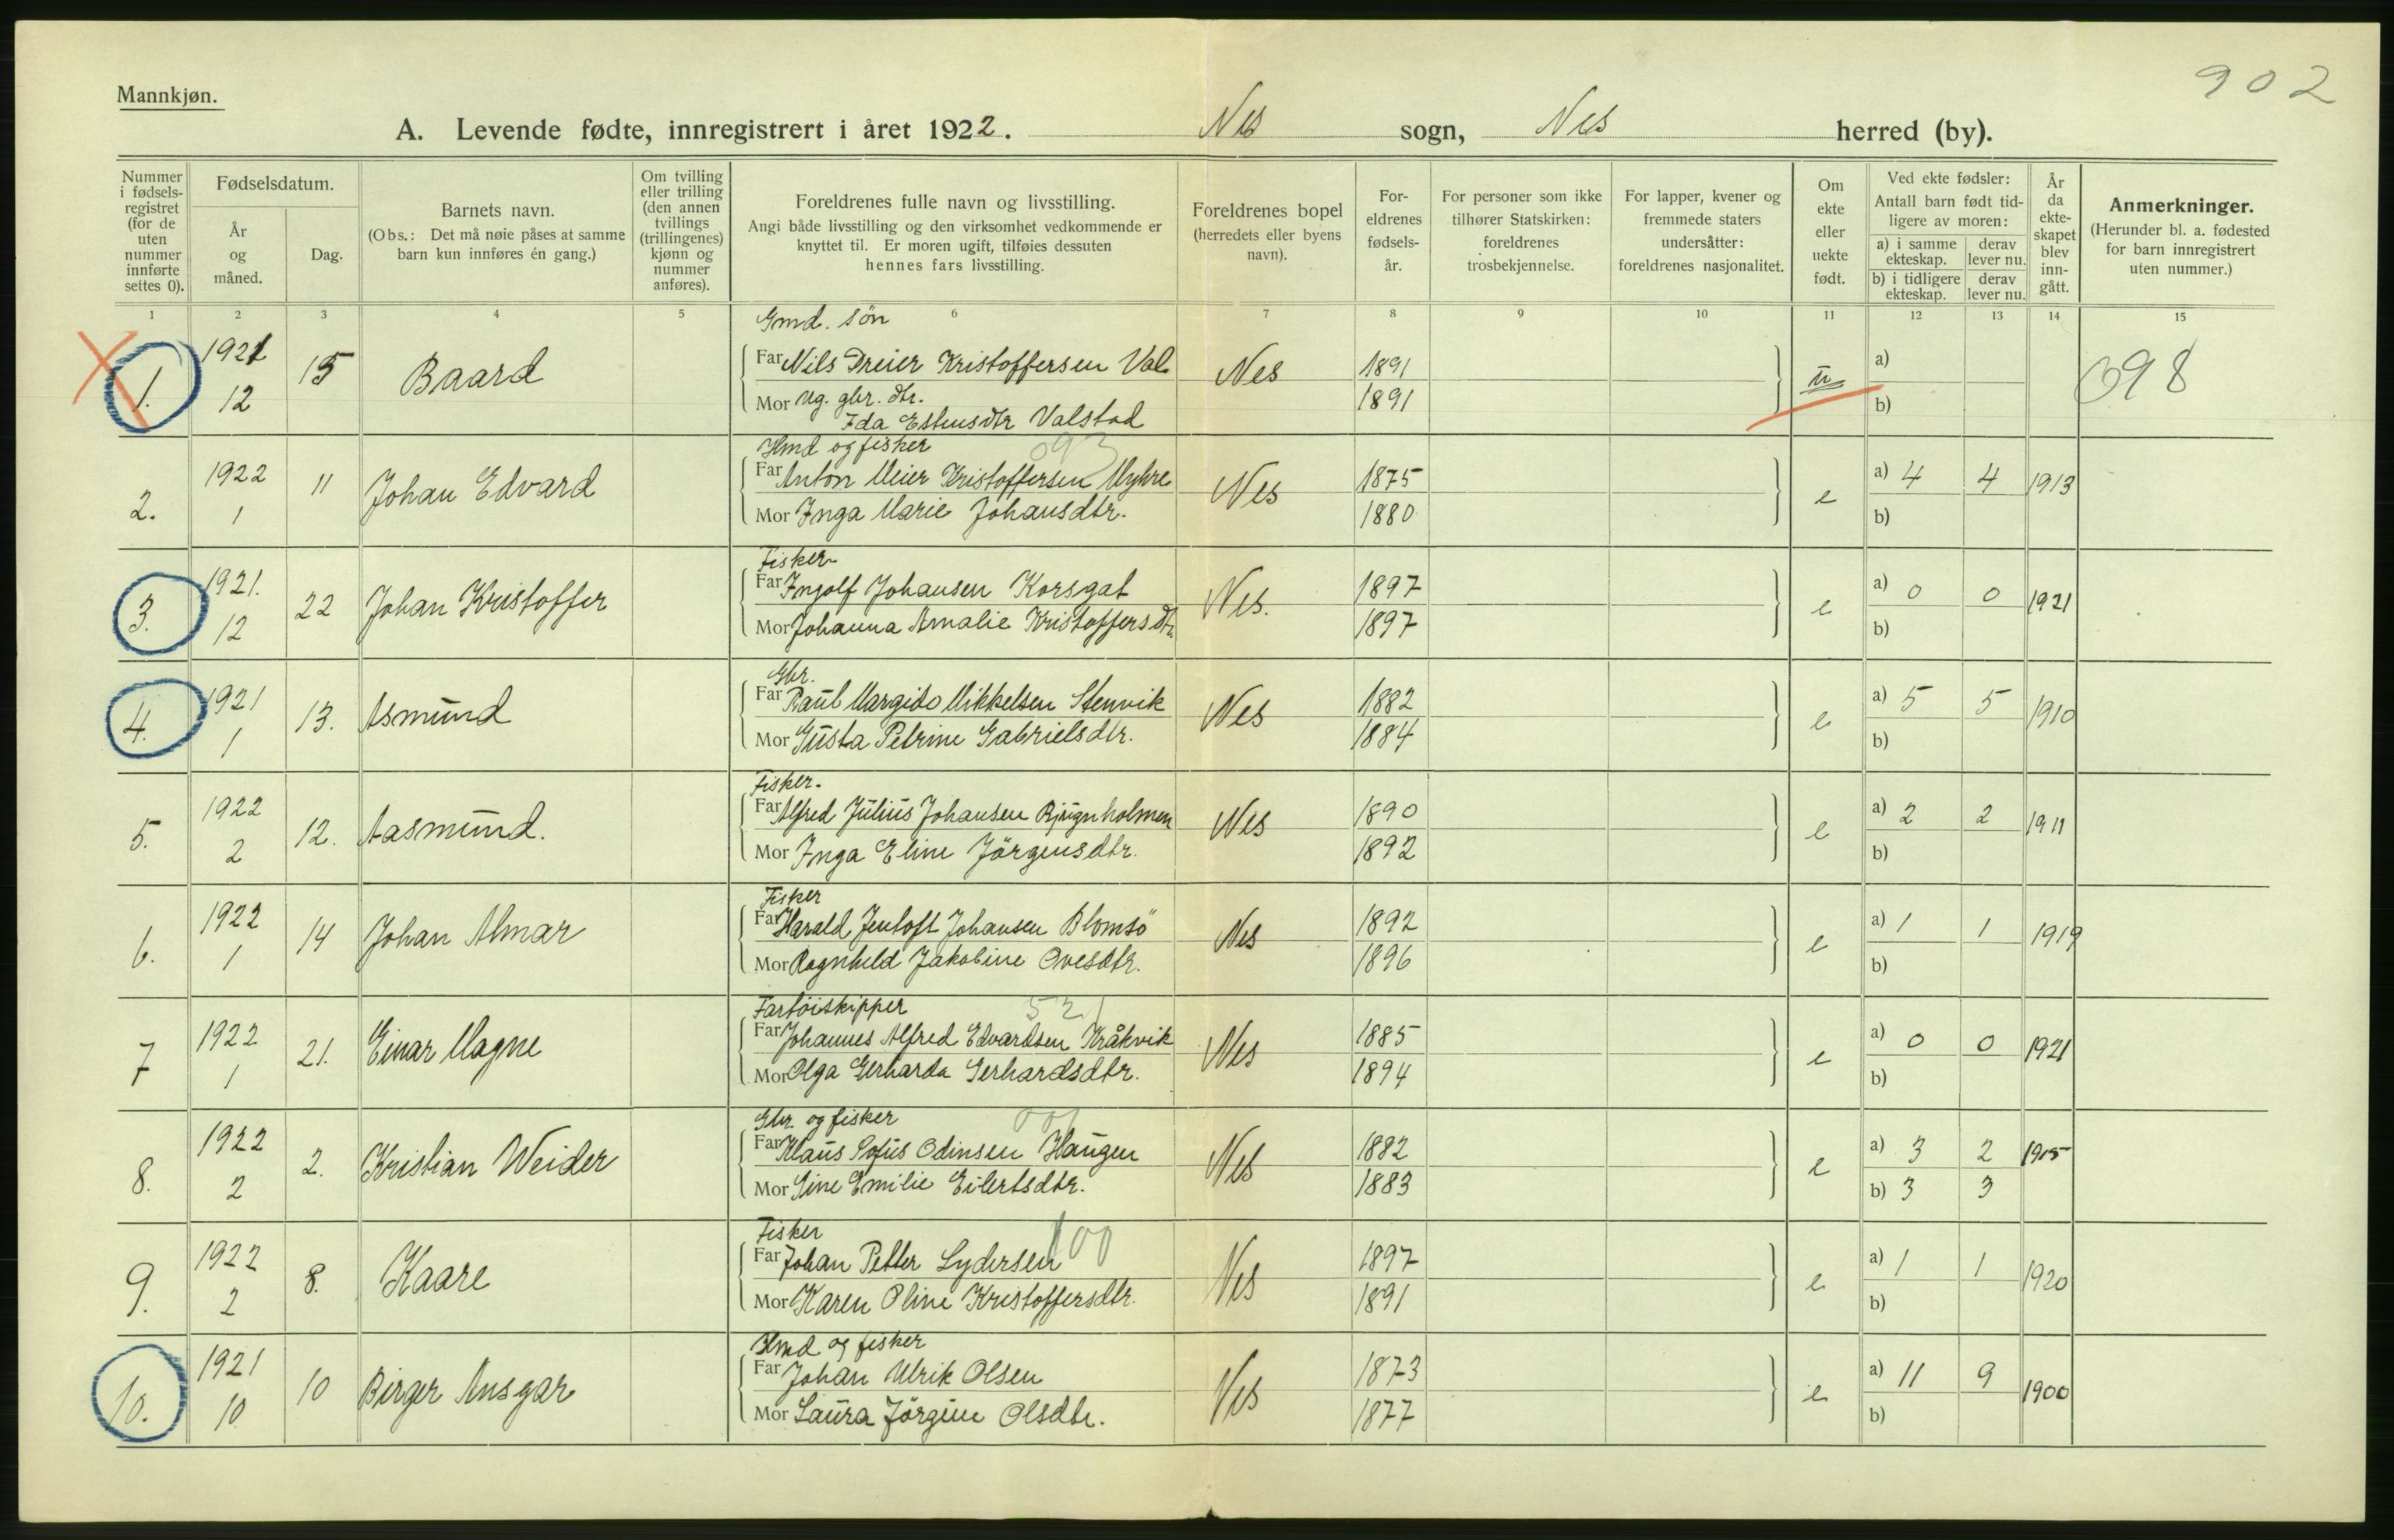 902
Mannkjøn.
A. Levende fødte, innregistrert i året 1922. Nes sogn, Nes herred (by).
Nummer i fødsels-registret (for de uten nummer innførte settes 0).
Fødselsdatum.
År og måned.
Dag.
Barnets navn.
(Obs.: Det må nøie påses at samme barn kun innføres én gang.)
Om tvilling eller trilling (den annen tvillings (trillingenes) kjønn og nummer anføres).
Foreldrenes fulle navn og livsstilling.
Angi både livsstilling og den virksomhet vedkommende er knyttet til. Er moren ugift, tilføies dessuten hennes fars livsstilling.
Foreldrenes bopel (herredets eller byens navn).
For-eldrenes fødsels-år.
For personer som ikke tilhører Statskirken: foreldrenes trosbekjennelse.
For lapper, kvener og fremmede staters undersåtter: foreldrenes nasjonalitet.
Om ekte eller uekte født.
Ved ekte fødsler: Antall barn født tid-ligere av moren:
a) i samme ekteskap. derav lever nu.
b) i tidligere ekteskap. derav lever nu.
År da ekte-skapet blev inn-gått.
Anmerkninger.
(Herunder bl. a. fødested for barn innregistrert uten nummer.)
1 2 3 4 5 6 7 8 9 10 11 12 13 14 15
Gmd. søn
1. 1921 12 15 Baard
Far Nils Dreier Kristoffersen Val Nes 1891 u a) 098
Mor Ug. gbr. dtr.
Ida Estensdtr Valstad 1891 b)
Hmd og fisker 093
2. 1922 1 11 Johan Edvard
Far Anton Meier Kristoffersen Myhre Nes 1875 e a) 4 4 1913
Mor Inga Marie Johansdtr. 1880 b)
Fisker
3. 1921. 12 22 Johan Kristoffer
Far Ingolf Johansen Korsgat Nes. 1897 e a) 0 0 1921
Mor Johanna Amalie Kristoffersdtr 1897 b)
Gbr.
4. 1921 1 13. Asmund
Far Paul Margido Mikkelsen Stenvik Nes 1882 e a) 5 5 1910
Mor Gusta Petrine Gabrielsdtr. 1884 b)
Fisker.
5. 1922 2 12. Aasmund.
Far Alfred Julius Johansen Nes 1890 e a) 2 2 1911
Mor Inga Eline Jörgensdtr. 1892 b)
Fisker
6. 1922 1 14 Johan Almar
Far Harald Jentoft Johansen Blomsö Nes 1892 e a) 1 1 1919
Mor Ragnheld Jakobine Ovesdtr. 1896 b)
Fartöiskipper 521
7 1922 1 21. Einar Magne
Far Johannes Alfred Edvardsen Kråkvik Nes 1885 e a) 0 0 1921
Mor Olga Gerharda Gerhardsdtr. 1894 b)
Gbr. og fisker 001
8. 1922 2 2. Kristian Weider
Far Klaus Sofus Odinsen Haugen Nes 1882 e a) 3 2 1915
Mor Sine Emilie Eilertsdtr. 1883 b) 3 3
Fisker 100
9. 1922 2 8. Kaare
Far Johan Petter Lydersen Nes 1897 e a) 1 1 1920
Mor Karen Oline Kristoffersdtr. 1891 b)
Hmd og fisker
10. 1921 10 10 Birger Ansgar
Far Johan Ulrik Olsen Nes 1873 e a) 11 9 1900
Mor Laura Jörgine Olsdtr. 1877 b)